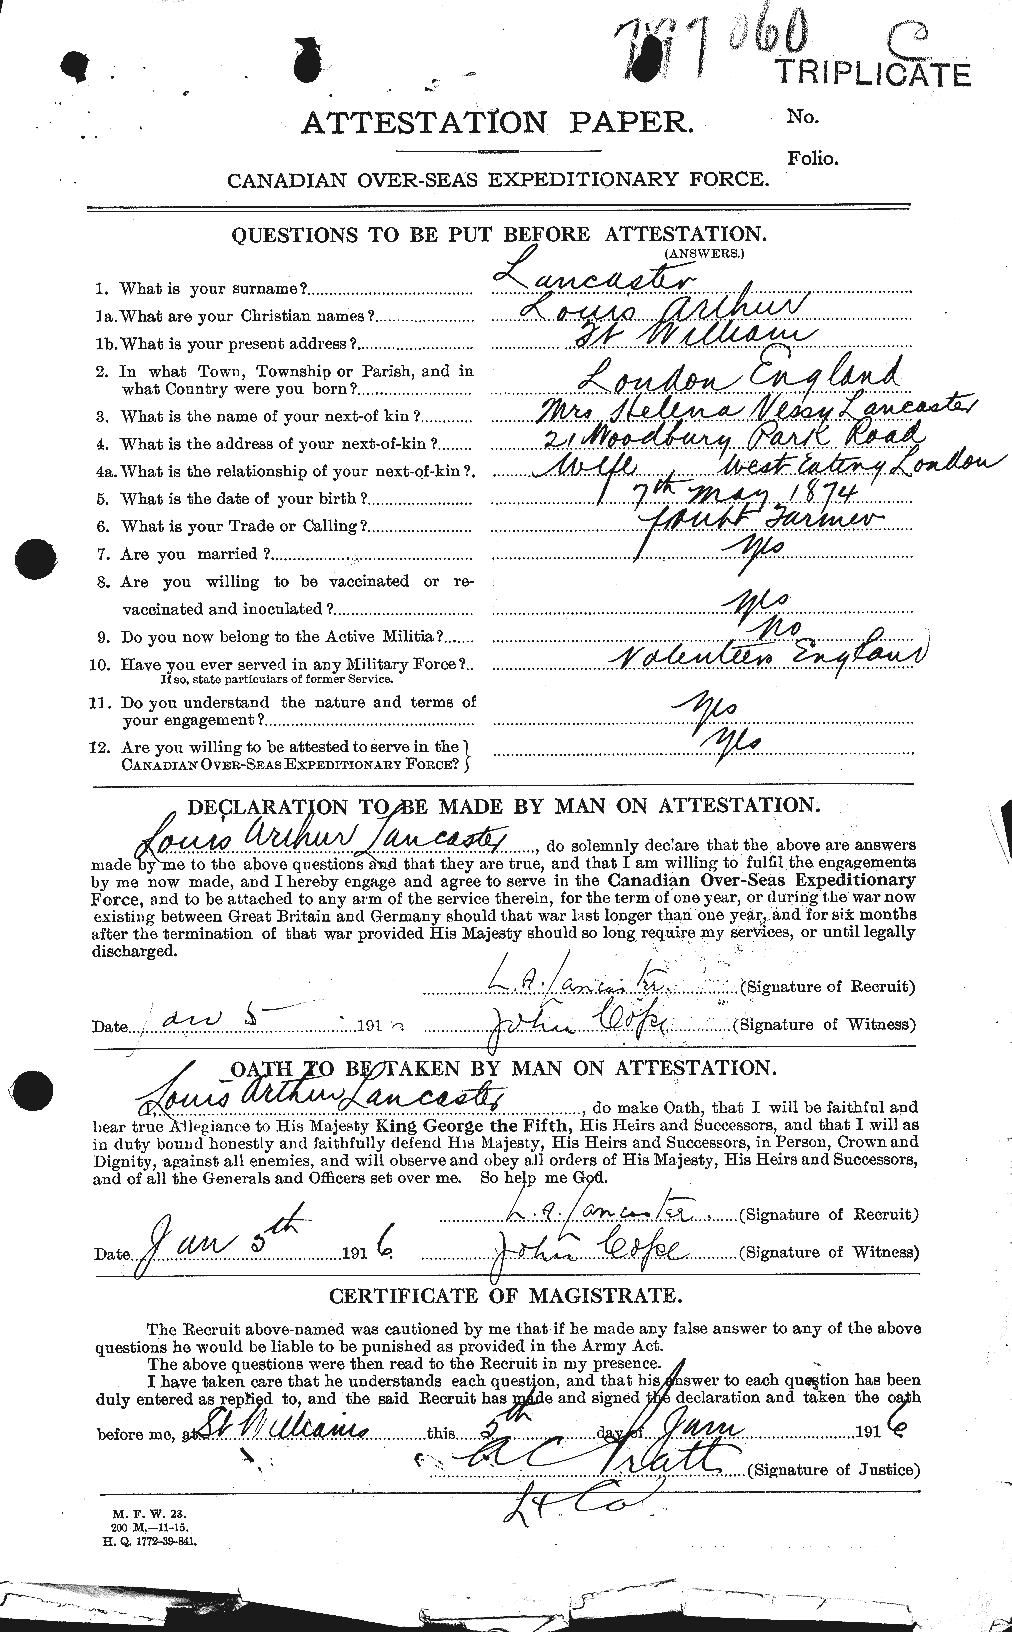 797060 C
TRIPLICATE
ATTESTATION PAPER.
No.
Folio.
CANADIAN OVER-SEAS EXPEDITIONARY FORCE.
QUESTIONS TO BE PUT BEFORE ATTESTATION.
(ANSWERS.)
1. What is your surname? Lancaster
1a. What are your Christian names? Louis Arthur
1b. What is your present address? St William
2. In what Town, Township or Parish, and in
what Country were you born? London England
3. What is the name of your next-of kin? Mrs Helena Vessy Lancaster
4. What is the address of your next-of-kin? 21 Woodbury Park Road
4a. What is the relationship of your next-of-kin? Wife West Ealing London
5. What is the date of your birth? 7th May 1874
6. What is your Trade or Calling? Farmer
7. Are you married? Yes
8. Are you willing to be vaccinated or re-
vaccinated and inoculated? Yes
9. Do you now belong to the Active Militia? No
10. Have you ever served in any Military Force? Volenteers England
If so, state particulars of former Service.
11. Do you understand the nature and terms of
your engagement? Yes
12. Are you willing to be attested to serve in the
CANADIAN OVER-SEAS EXPEDITIONARY FORCE? Yes
DECLARATION TO BE MADE BY MAN ON ATTESTATION.
Louis Arthur Lancaster, do solemnly declare that the above are answers
made by me to the above questions and that they are true, and that I am willing to fulfil the engagements
by me now made, and I hereby engage and agree to serve in the Canadian Over-Seas Expeditionary
Force, and to be attached to any arm of the service therein, for the term of one year, or during the war now
existing between Great Britain and Germany should that war last longer than one year, and for six months
after the termination of that war provided His Majesty should so long require my services, or until legally
discharged.
L. A. Lancaster (Signature of Recruit)
Date Jan 5 191 John Cope (Signature of Witness)
OATH TO BE TAKEN BY MAN ON ATTESTATION.
Louis Arthur Lancaster, do make Oath, that I will be faithful and
bear true Allegiance to His Majesty King George the Fifth, His Heirs and Successors, and that I will as
in duty bound honestly and faithfully defend His Majesty, His Heirs and Successors, in Person, Crown and
Dignity, against all enemies, and will observe and obey all orders of His Majesty, His Heirs and Successors,
and of all the Generals and Officers set over me. So help me God.
L. A. Lancaster (Signature of Recruit)
Date Jan 5th 1916 John Cope (Signature of Witness)
CERTIFICATE OF MAGISTRATE.
The Recruit above-named was cautioned by me that if he made any false answer to any of the above
questions he would be liable to be punished as provided in the Army Act.
The above questions were then read to the Recruit in my presence.
I have taken care that he understands each question, and that his answer to each question has been
duly entered as replied to, and the said Recruit has made and signed the declaration and taken the oath
before me, at St Williams this 5th day of Jam 1916
A C Pratt (Signature of Justice)
Lt Col
M. F. W. 23.
200 M.—11-15.
H. Q. 1772-39-841.